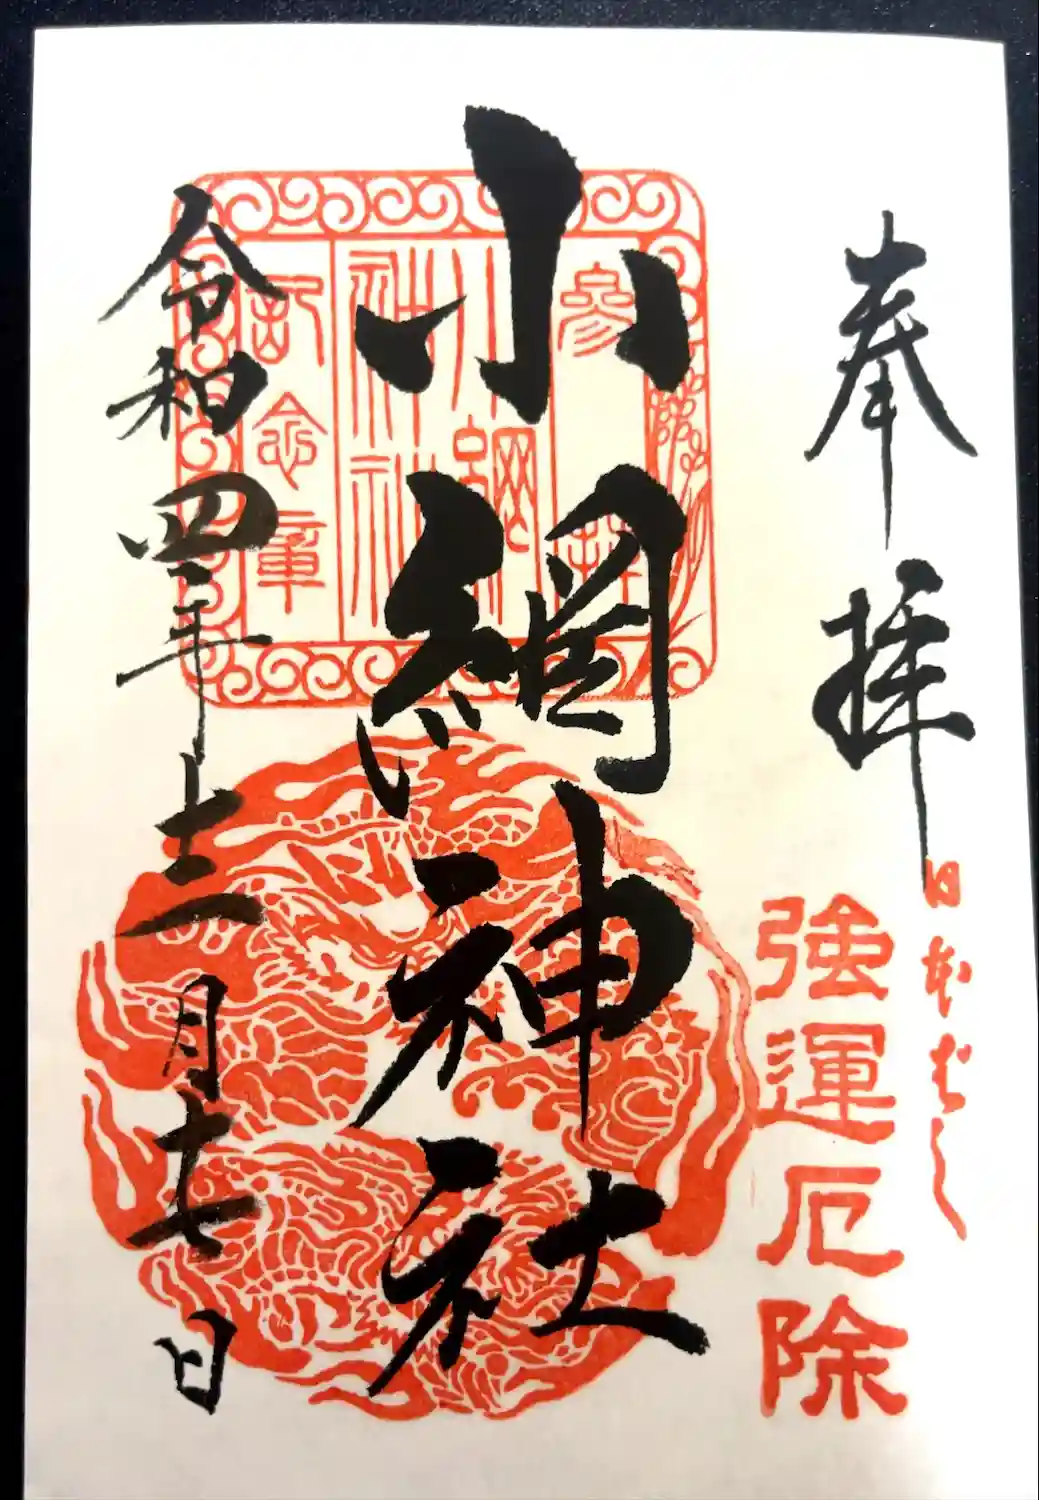 奉拝
日本ばし
強運厄除
小網神社
參拝
小網
神社
記念章
令和四年十二月十七日